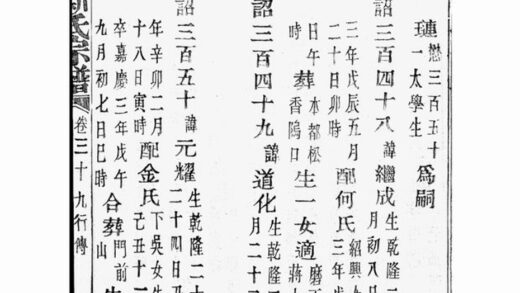 璉懋三百五十一太學生為嗣
詔三百四十八諱繼成生乾隆二月初八日
三年戊辰五月二十日卯時配何氏紹興三年
日午時葬本都松香鴿口生一女適蔣
詔三百四十九諱道化生乾隆月二十
詔三百五十諱元耀生乾隆二十二十四日
年辛卯二月十八日寅時配金氏下吳女生己丑十
卒嘉慶三年戊午九月初七日巳時合葬門前山
氏宗譜卷三十九行傳